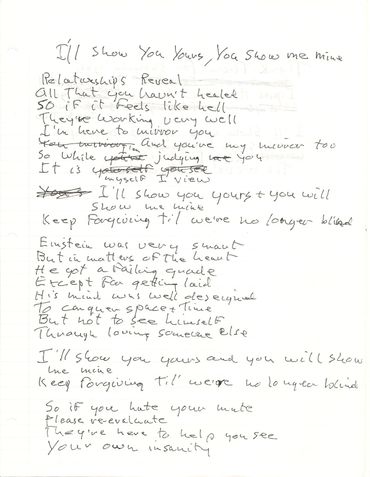 I'll show You Yours, You show me mine
Relationships Reveal
All That you havn't healed
SO if it feels like hell
They're working very well
I'm here to mirror you
And you're my mirror too
So while I'm judging you
It is myself I view
I'll show you yours + you will
show me mine
Keep Forgiving til we're no longer blind
Einstein was very smart
But in matters of the heart
He got a failing grade
Except for getting laid
His mind was well deseigned
To conquer space + Time
But not to see himself
Through loving someone else
I'll show you yours and you will show
me mine
Keep Forgiving til' we're no longer blind
So if you hate your mate
Please re-evaluate
They're here to help you see
Your own insanity